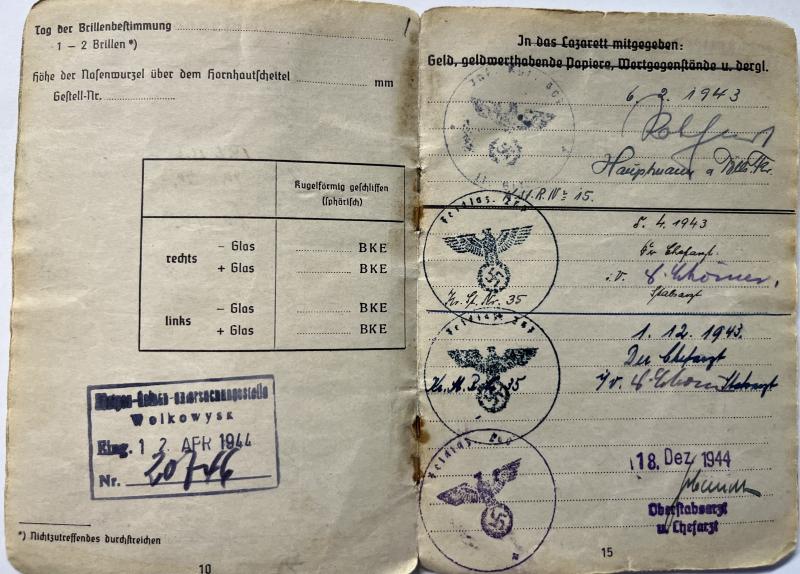 Tag der Brillenbestimmung
1 – 2 Brillen*)
Höhe der Nasenwurzel über dem Hornhautscheitel mm
Gestell-Nr.
Kugelförmig geschliffen
(sphärisch)
rechts
– Glas BKE
+ Glas BKE
links
– Glas BKE
+ Glas BKE
Wolkowysk
Eing. 12 APR 1944
Nr.
*) Nichtzutreffendes durchstreichen
10
In das Lazarett mitgegeben:
Geld, geldwerthabende Papiere, Wertgegenstände u. dergl.
6. 2. 1943
Hauptmann
8. 4. 1943
Der Chefarzt
i.V.
Stabsarzt
Kr. Sp. Nr. 35
1. 12. 1943.
Der Chefarzt
i/v. Stabsarzt
35
18. Dez. 1944
Oberstabsarzt
u. Chefarzt
15